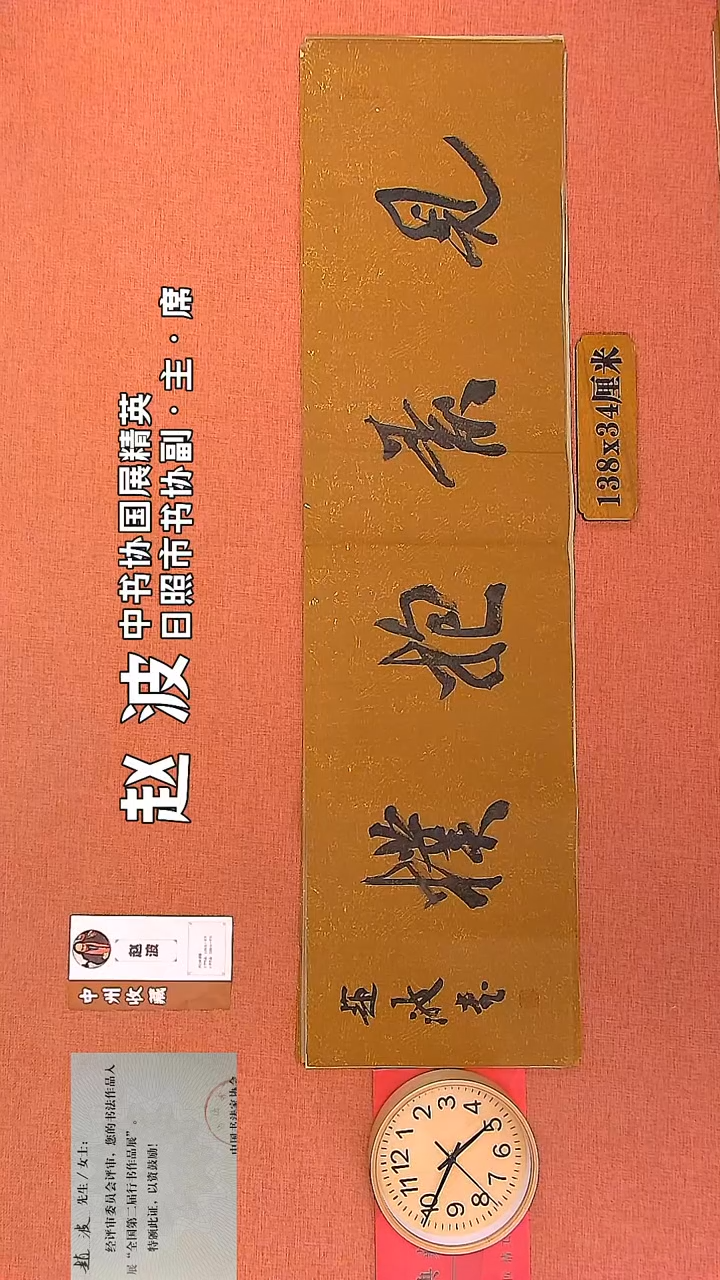 赵波
中书协国展精英
日照市书协副·主·席
見素抱樸
赵波書
138x34厘米
赵波
中州收藏
赵波 先生/女士:
经评审委员会评审,您的书法作品入
展“全国第二届行书作品展”。
特颁此证,以资鼓励!
中国书法家协会
12
1
2
3
4
5
6
7
8
9
10
11